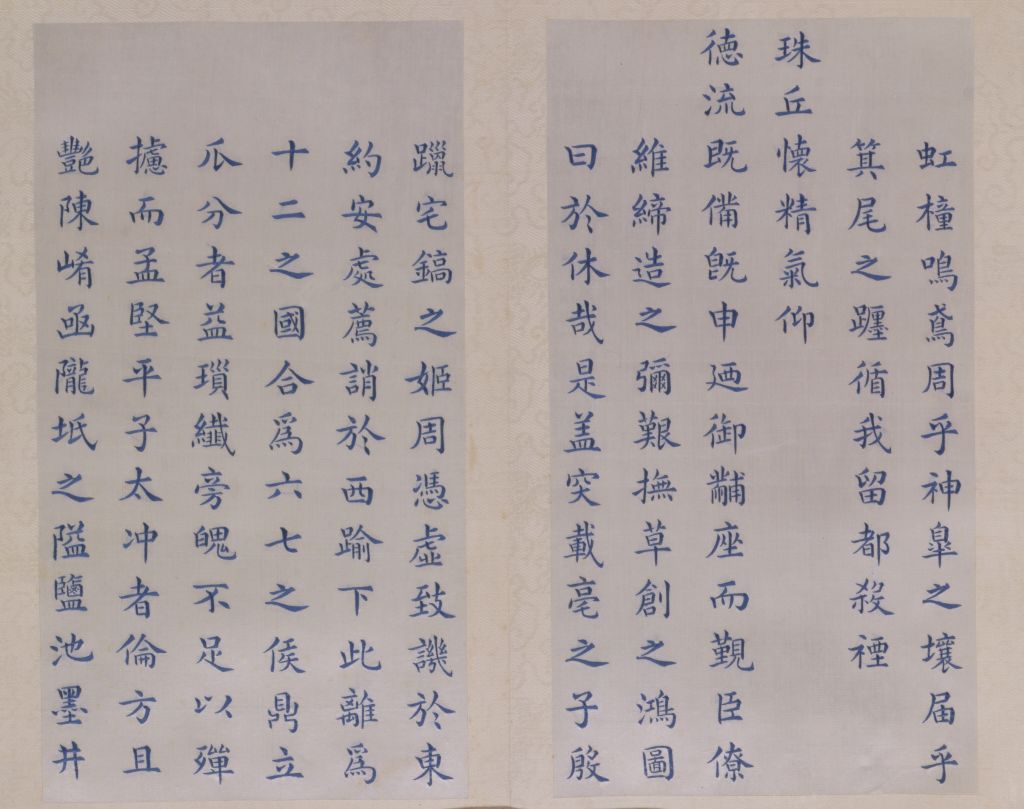 虹橦鳴鳶周乎神皐之壤届乎
箕尾之躔循我留都殺禋
珠丘懷精氣仰
德流既備旣申廼御黼座而覲臣僚
維締造之彌艱撫草創之鴻圖
曰於休哉是盖突載亳之子殷
躐宅鎬之姬周憑虛致譏於東
約安處薦誚於西踰下此離爲
十二之國合爲六七之侯鼎立
瓜分者益瑣纖旁魄不足以殫
攄而孟堅平子太冲者倫方且
豔陳崤函隴坻之隘鹽池墨井